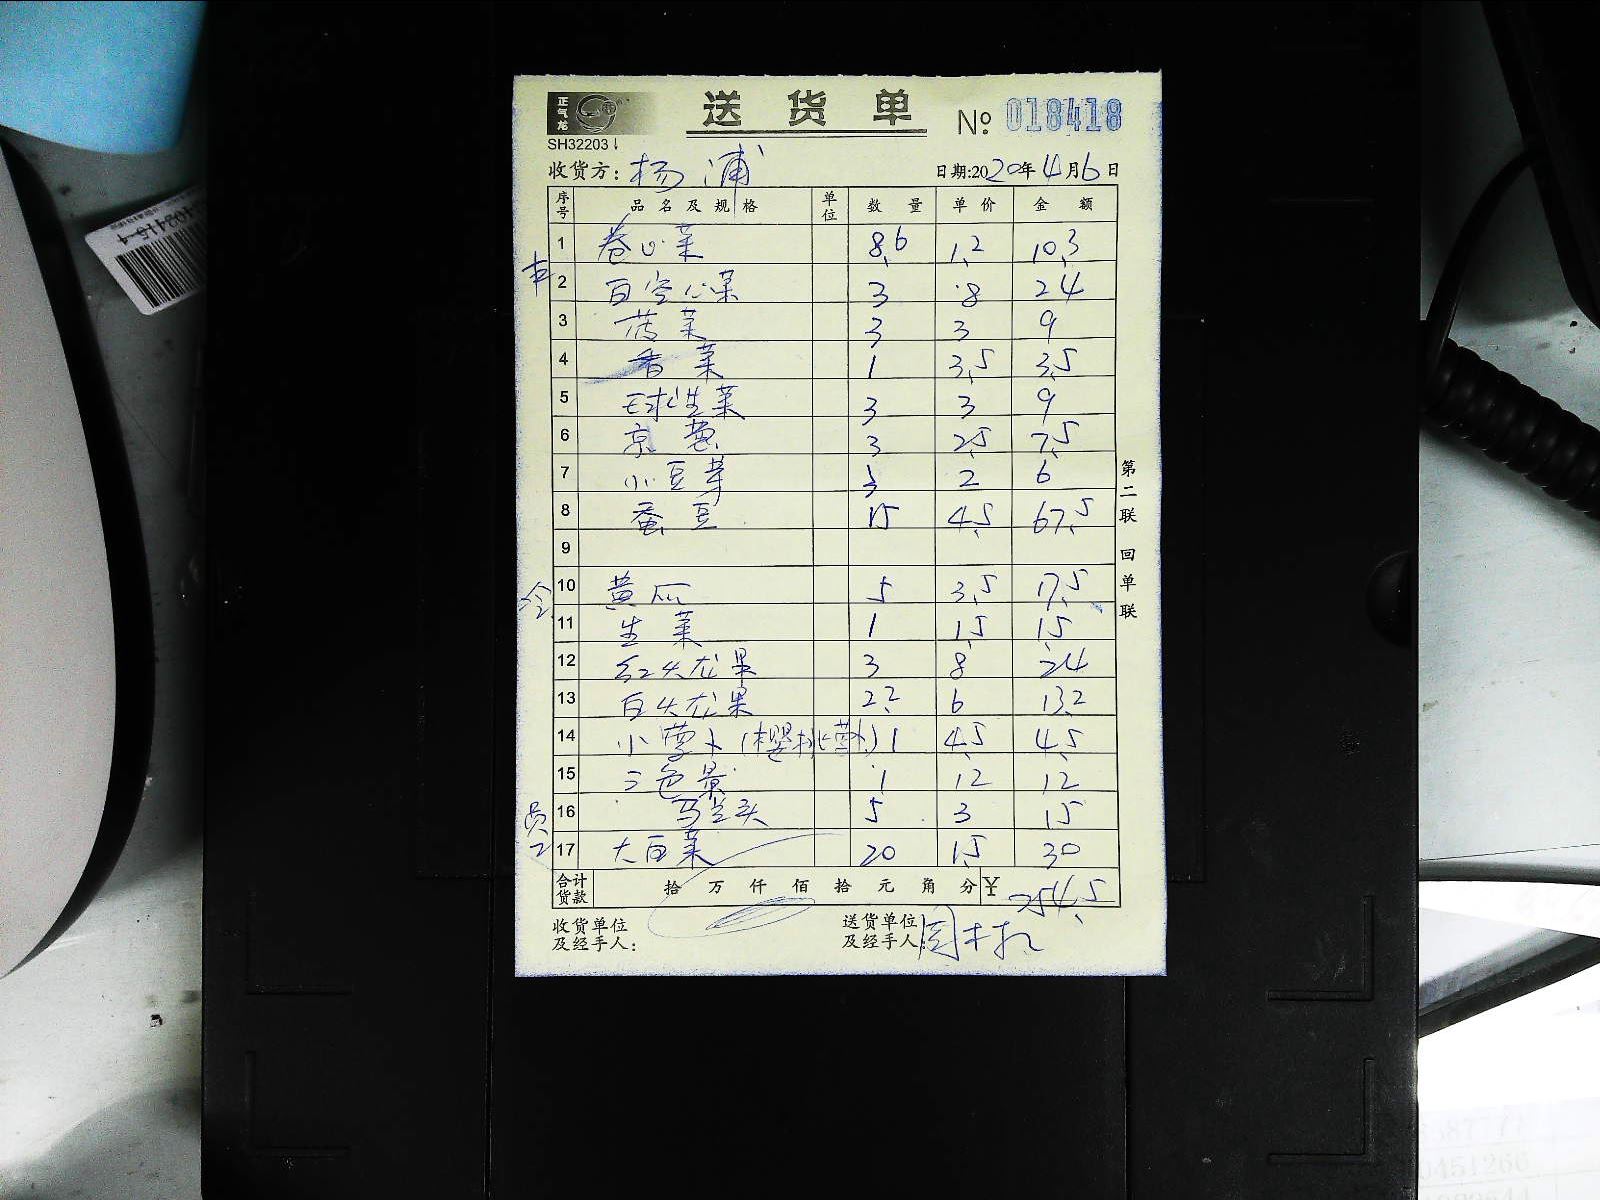 正气龙
送货单
No. 018418
SH32203
收货方：杨浦
日期:2020年4月6日
序号 品名及规格 单位 数量 单价 金额
1 卷心菜 8.6 1.2 10.3
2 白空心菜 3 8 24
3 菠菜 3 3 9
4 香菜 1 3.5 3.5
5 球生菜 3 3 9
6 京葱 3 2.5 7.5
7 小豆芽 3 2 6
8 蚕豆 15 4.5 67.5
9
10 黄瓜 5 3.5 17.5
11 生菜 1 1.5 1.5
12 红火龙果 3 8 24
13 白火龙果 2.2 6 13.2
14 小萝卜(樱桃萝卜) 1 4.5 4.5
15 三色堇 1 12 12
16 马兰头 5 3 15
员工
17 大白菜 20 1.5 30
合计货款 拾万仟佰拾元角分 ¥254.5
收货单位及经手人：
送货单位及经手人：
第二联 回单联